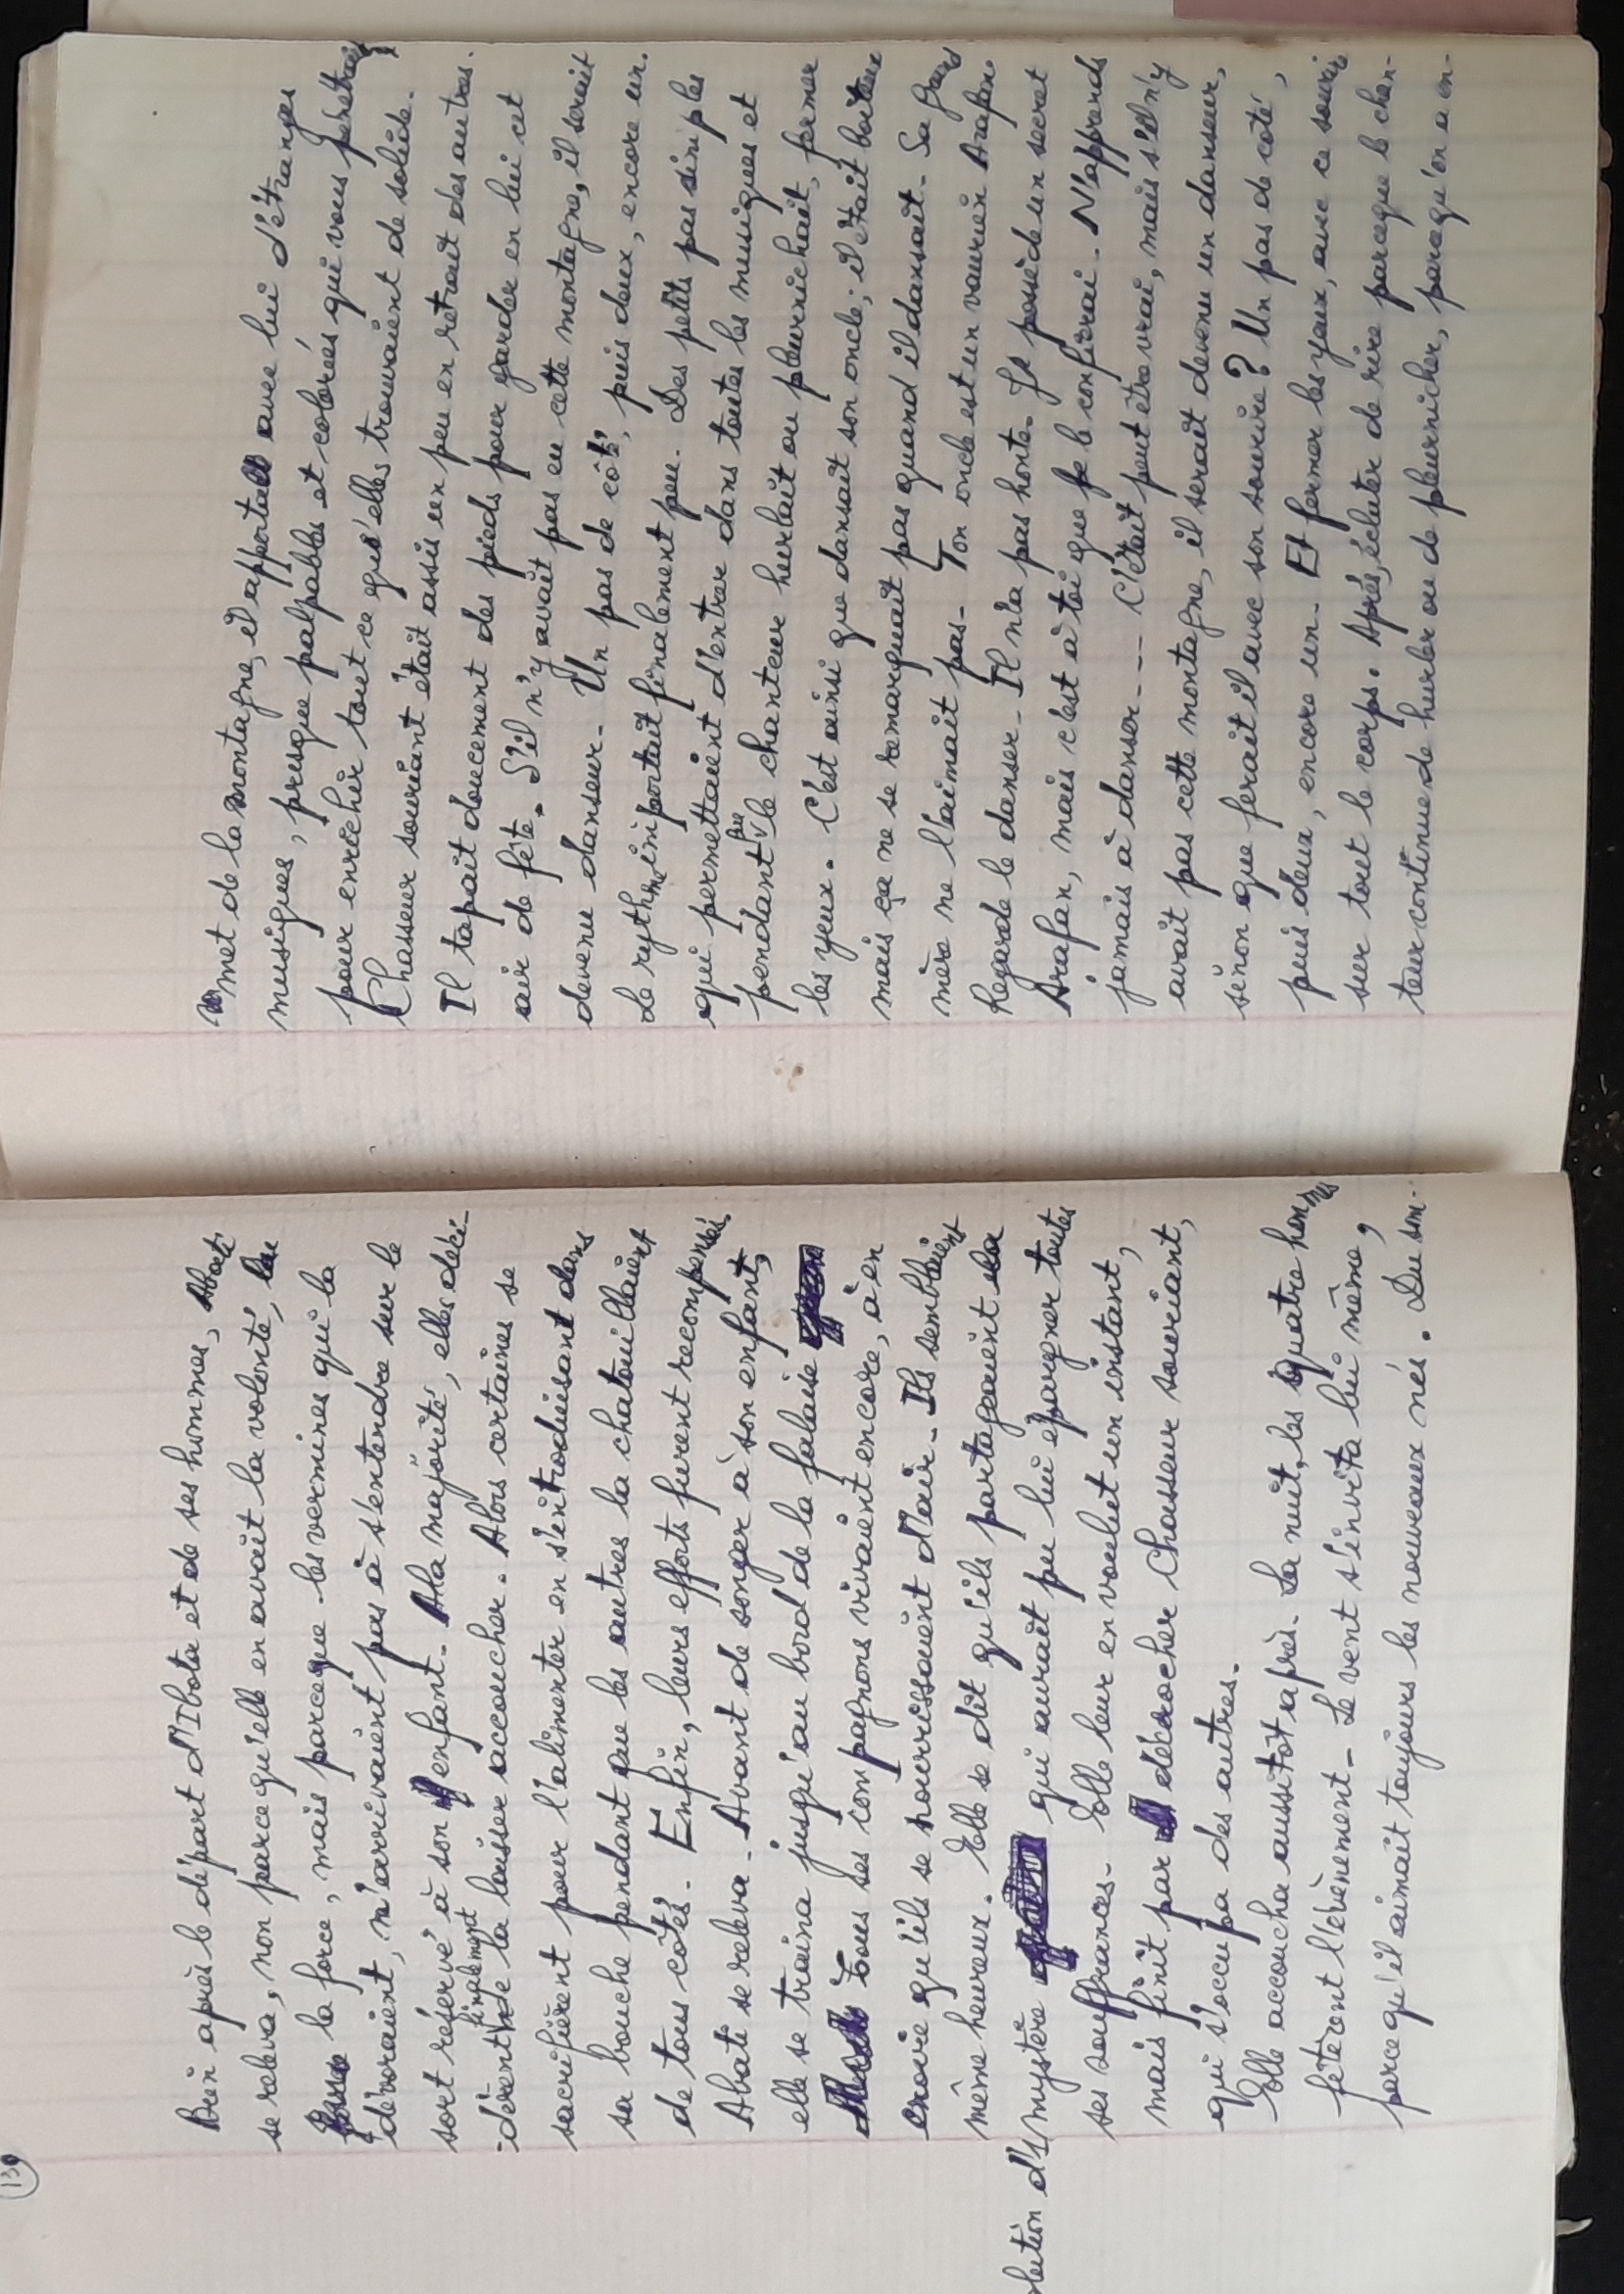 130
Bien après le départ d'Ibota et de ses hommes, Abati
se releva, non parce qu'elle en avait la volonté, la
la force, mais parceque les vermines qui la
dévoraient, n'arrivaient pas à s'entendre sur le
sort réservé à son enfant. A la majorité, elles déci-
-dèrent finalement de la laisser accoucher. Alors certaines se
sacrifièrent pour l'alimenter en s'introduisant dans
sa bouche pendant que les autres la chatouillaient
de tous côtés. Enfin, leurs efforts furent recompensés.
Abati se releva. Avant de songer à son enfant,
elle se traina jusqu'au bord de la falaise
Tous ses compagnons vivaient encore, à en
croire qu'ils se nourrissaient d'air. Ils semblaient
même heureux. Elle se dit qu'ils partageaient la
solution d'1 mystère qui aurait pu lui épargner toutes
ses souffrances. Elle leur en voulut un instant,
mais finit par décrocher Chasseur souriant,
qui s'occupa des autres.
Elle accoucha aussitôt après. La nuit, les quatre hommes
fêtèrent l'évènement. Le vent s'invita lui même,
parce qu'il aimait toujours les nouveaux nés. Du som-
met de la montagne, il apporta avec lui d'étranges
musiques, presque palpables et colorées qui vous pénétraient
pour enrichir tout ce qu'elles trouvaient de solide.
Chasseur souriant était assis un peu en retrait des autres.
Il tapait doucement des pieds pour garder en lui cet
air de fête. S'il n'y avait pas eu cette montagne, il serait
devenu danseur. Un pas de côté, puis deux, encore un.
Le rythme importait finalement peu. Des petits pas simples
qui permettaient d'entrer dans toutes les musiques et
pendant que le chanteur hurlait ou pleurnichait, fermer
les yeux. C'est ainsi que dansait son oncle; il était boiteux
mais ça ne se remarquait pas quand il dansait. Sa grand
mère ne l'aimait pas. Ton oncle est un vaurien Arafan.
Regarde le danser. Il n'a pas honte. Je possède un secret
Arafan, mais c'est à toi que je le confierai. N'apprends
jamais à danser... C'était peut être vrai, mais s'il n'y
avait pas cette montagne, il serait devenu un danseur,
sinon que ferait il avec son sourire? Un pas de coté,
puis deux, encore un. Et fermer les yeux, avec ce sourire
sur tout le corps. Après, éclater de rire parceque le chan-
teur continue de hurler ou de pleurnicher, parcequ'on a en-